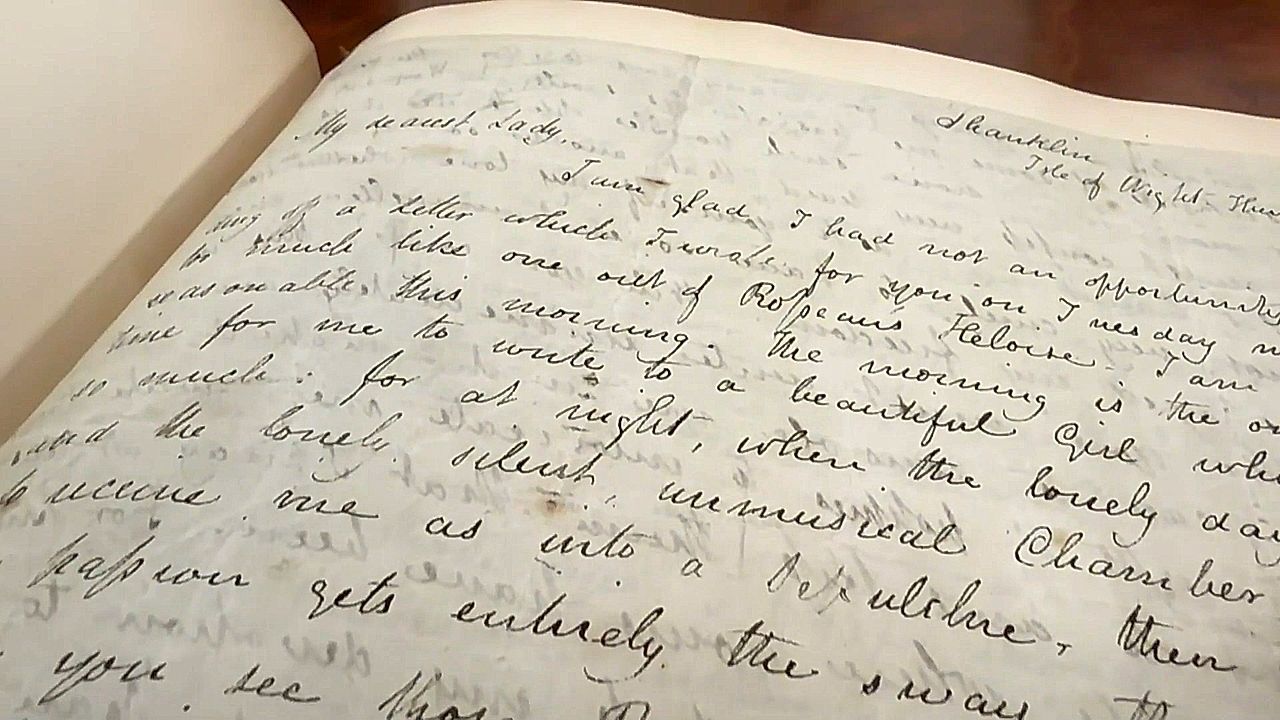 Shanklin
Isle of Wight
My dearest Lady,
I am glad I had not an opportunity
of a Letter which I wrote for you on Tuesday
much like one out of Ro_ſseau's Heloise. I am
reasonable this morning. The morning is the
time for me to write to a beautiful Girl
so much: for at night, when the lonely day
and the lonely, silent, unmusical Chamber
receive me as into a Sepulchre, then
paſsion gets entirely the sway
you see